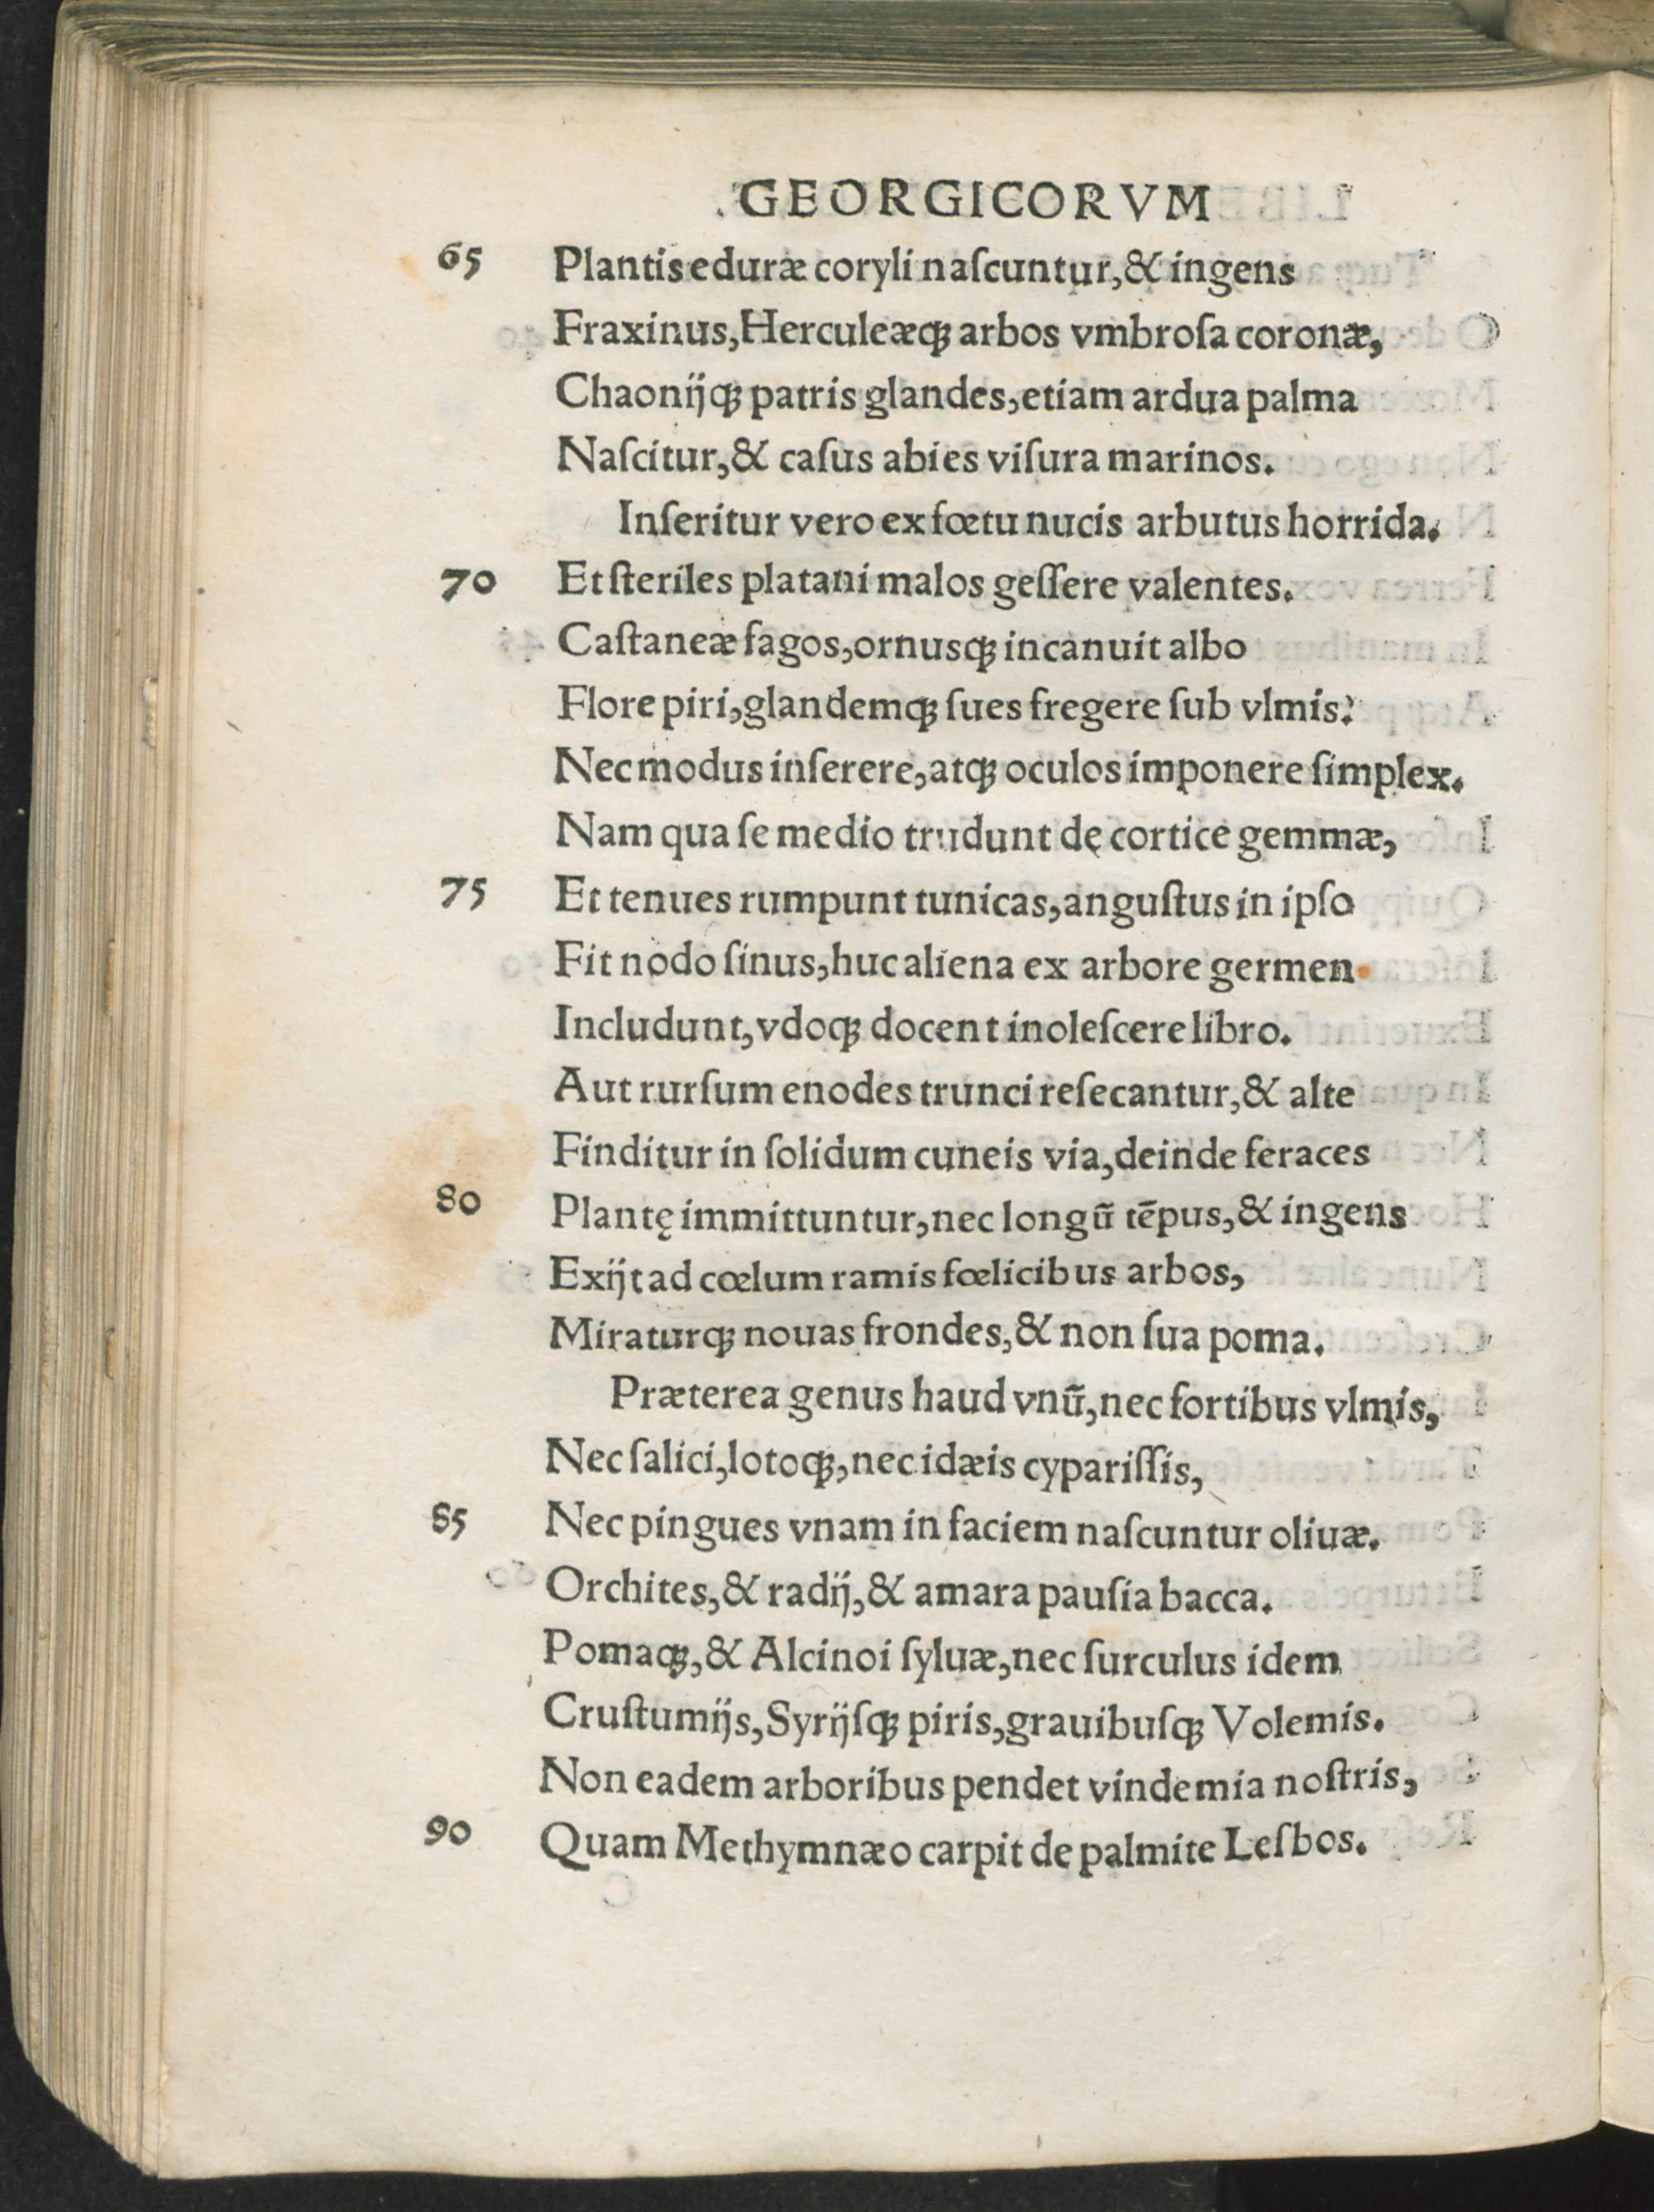 GEORGICORVM
65 Plantis eduræ coryli naſcuntur, & ingens
Fraxinus, Herculeæq; arbos vmbroſa coronæ,
Chaonijq; patris glandes, etiam ardua palma
Naſcitur, & caſus abies viſura marinos.
Inſeritur vero ex fœtu nucis arbutus horrida.
70 Et ſteriles platani malos geſſere valentes.
Caſtaneæ fagos, ornusq; incanuit albo
Flore piri, glandemq; ſues fregere ſub vlmis.
Nec modus inſerere, atq; oculos imponere ſimplex.
Nam qua ſe medio trudunt dę cortice gemmæ,
75 Et tenues rumpunt tunicas, anguſtus in ipſo
Fit nodo ſinus, huc aliena ex arbore germen
Includunt, vdoq; docent inoleſcere libro.
Aut rurſum enodes trunci reſecantur, & alte
Finditur in ſolidum cuneis via, deinde feraces
80 Plantę immittuntur, nec longũ tēpus, & ingens
Exijt ad cœlum ramis fœlicibus arbos,
Miraturq; nouas frondes, & non ſua poma.
Præterea genus haud vnũ, nec fortibus vlmis,
Nec ſalici, lotoq;, nec idæis cypariſſis,
85 Nec pingues vnam in faciem naſcuntur oliuæ.
Orchites, & radij, & amara pauſia bacca.
Pomaq;, & Alcinoi ſyluæ, nec ſurculus idem
Cruſtumijs, Syrijſq; piris, grauibuſq; Volemis.
Non eadem arboribus pendet vindemia noſtris,
90 Quam Methymnæo carpit de palmite Leſbos.